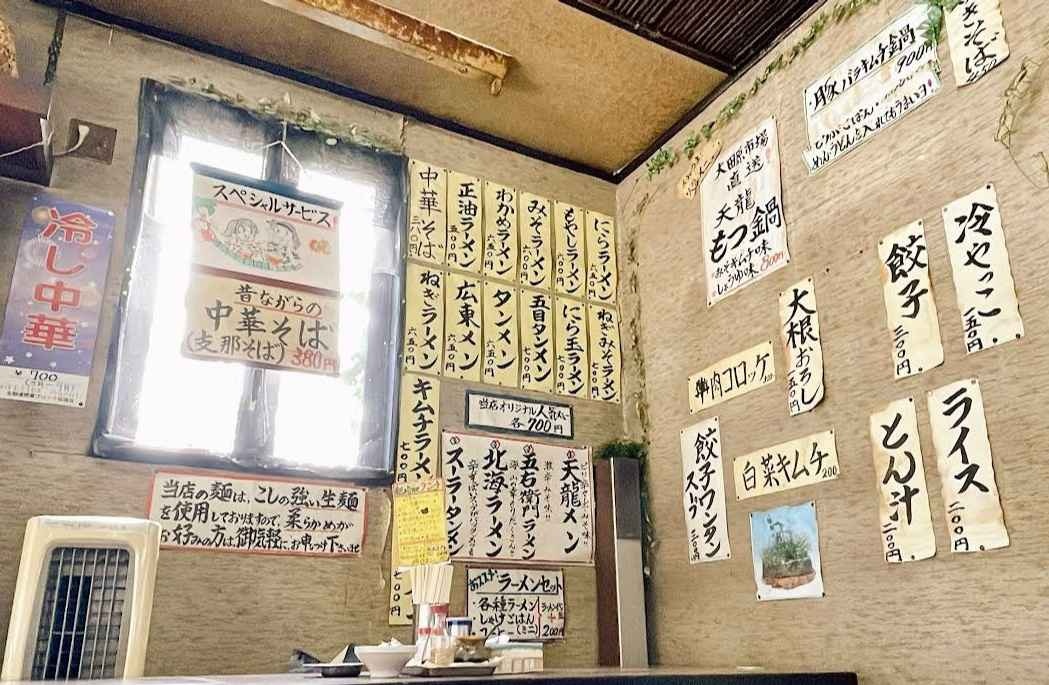 冷し中華
¥700
スペシャルサービス!
昔ながらの
中華そば
(支那そば)
380円
中華そば
三八〇円
正油ラーメン
五〇〇円
わかめラーメン
六五〇円
みそラーメン
六五〇円
もやしラーメン
六五〇円
にらラーメン
六五〇円
ねぎラーメン
六五〇円
広東メン
六五〇円
タンメン
六五〇円
五目タンメン
七〇〇円
にら玉ラーメン
七〇〇円
ねぎみそラーメン
キムチラーメン
七〇〇円
当店オリジナル人気メニュー
各700円
天龍メン
五右衛門ラーメン
北海ラーメン
スーラータンメン
当店の麺は、こしの強い生麺
を使用しておりますので、柔らかめが
お好みの方は、御気軽にお申つけ下さいませ
おススメ ラーメンセット
・各種ラーメン
・しゃけごはん
(ミニ)
ラーメン代
+
200円
大田原市場
直送
天龍
もつ鍋
みそキムチ味
しょうゆ味
800円
・豚バラキムチ鍋
900円
めん・うどんを入れてもうまいヨ!
焼きそば
大根おろし
一五〇円
餃子
三〇〇円
冷やっこ
一五〇円
コロッケ
餃子ワンタン
スープ
白菜キムチ
200
とん汁
二〇〇円
ライス
二〇〇円